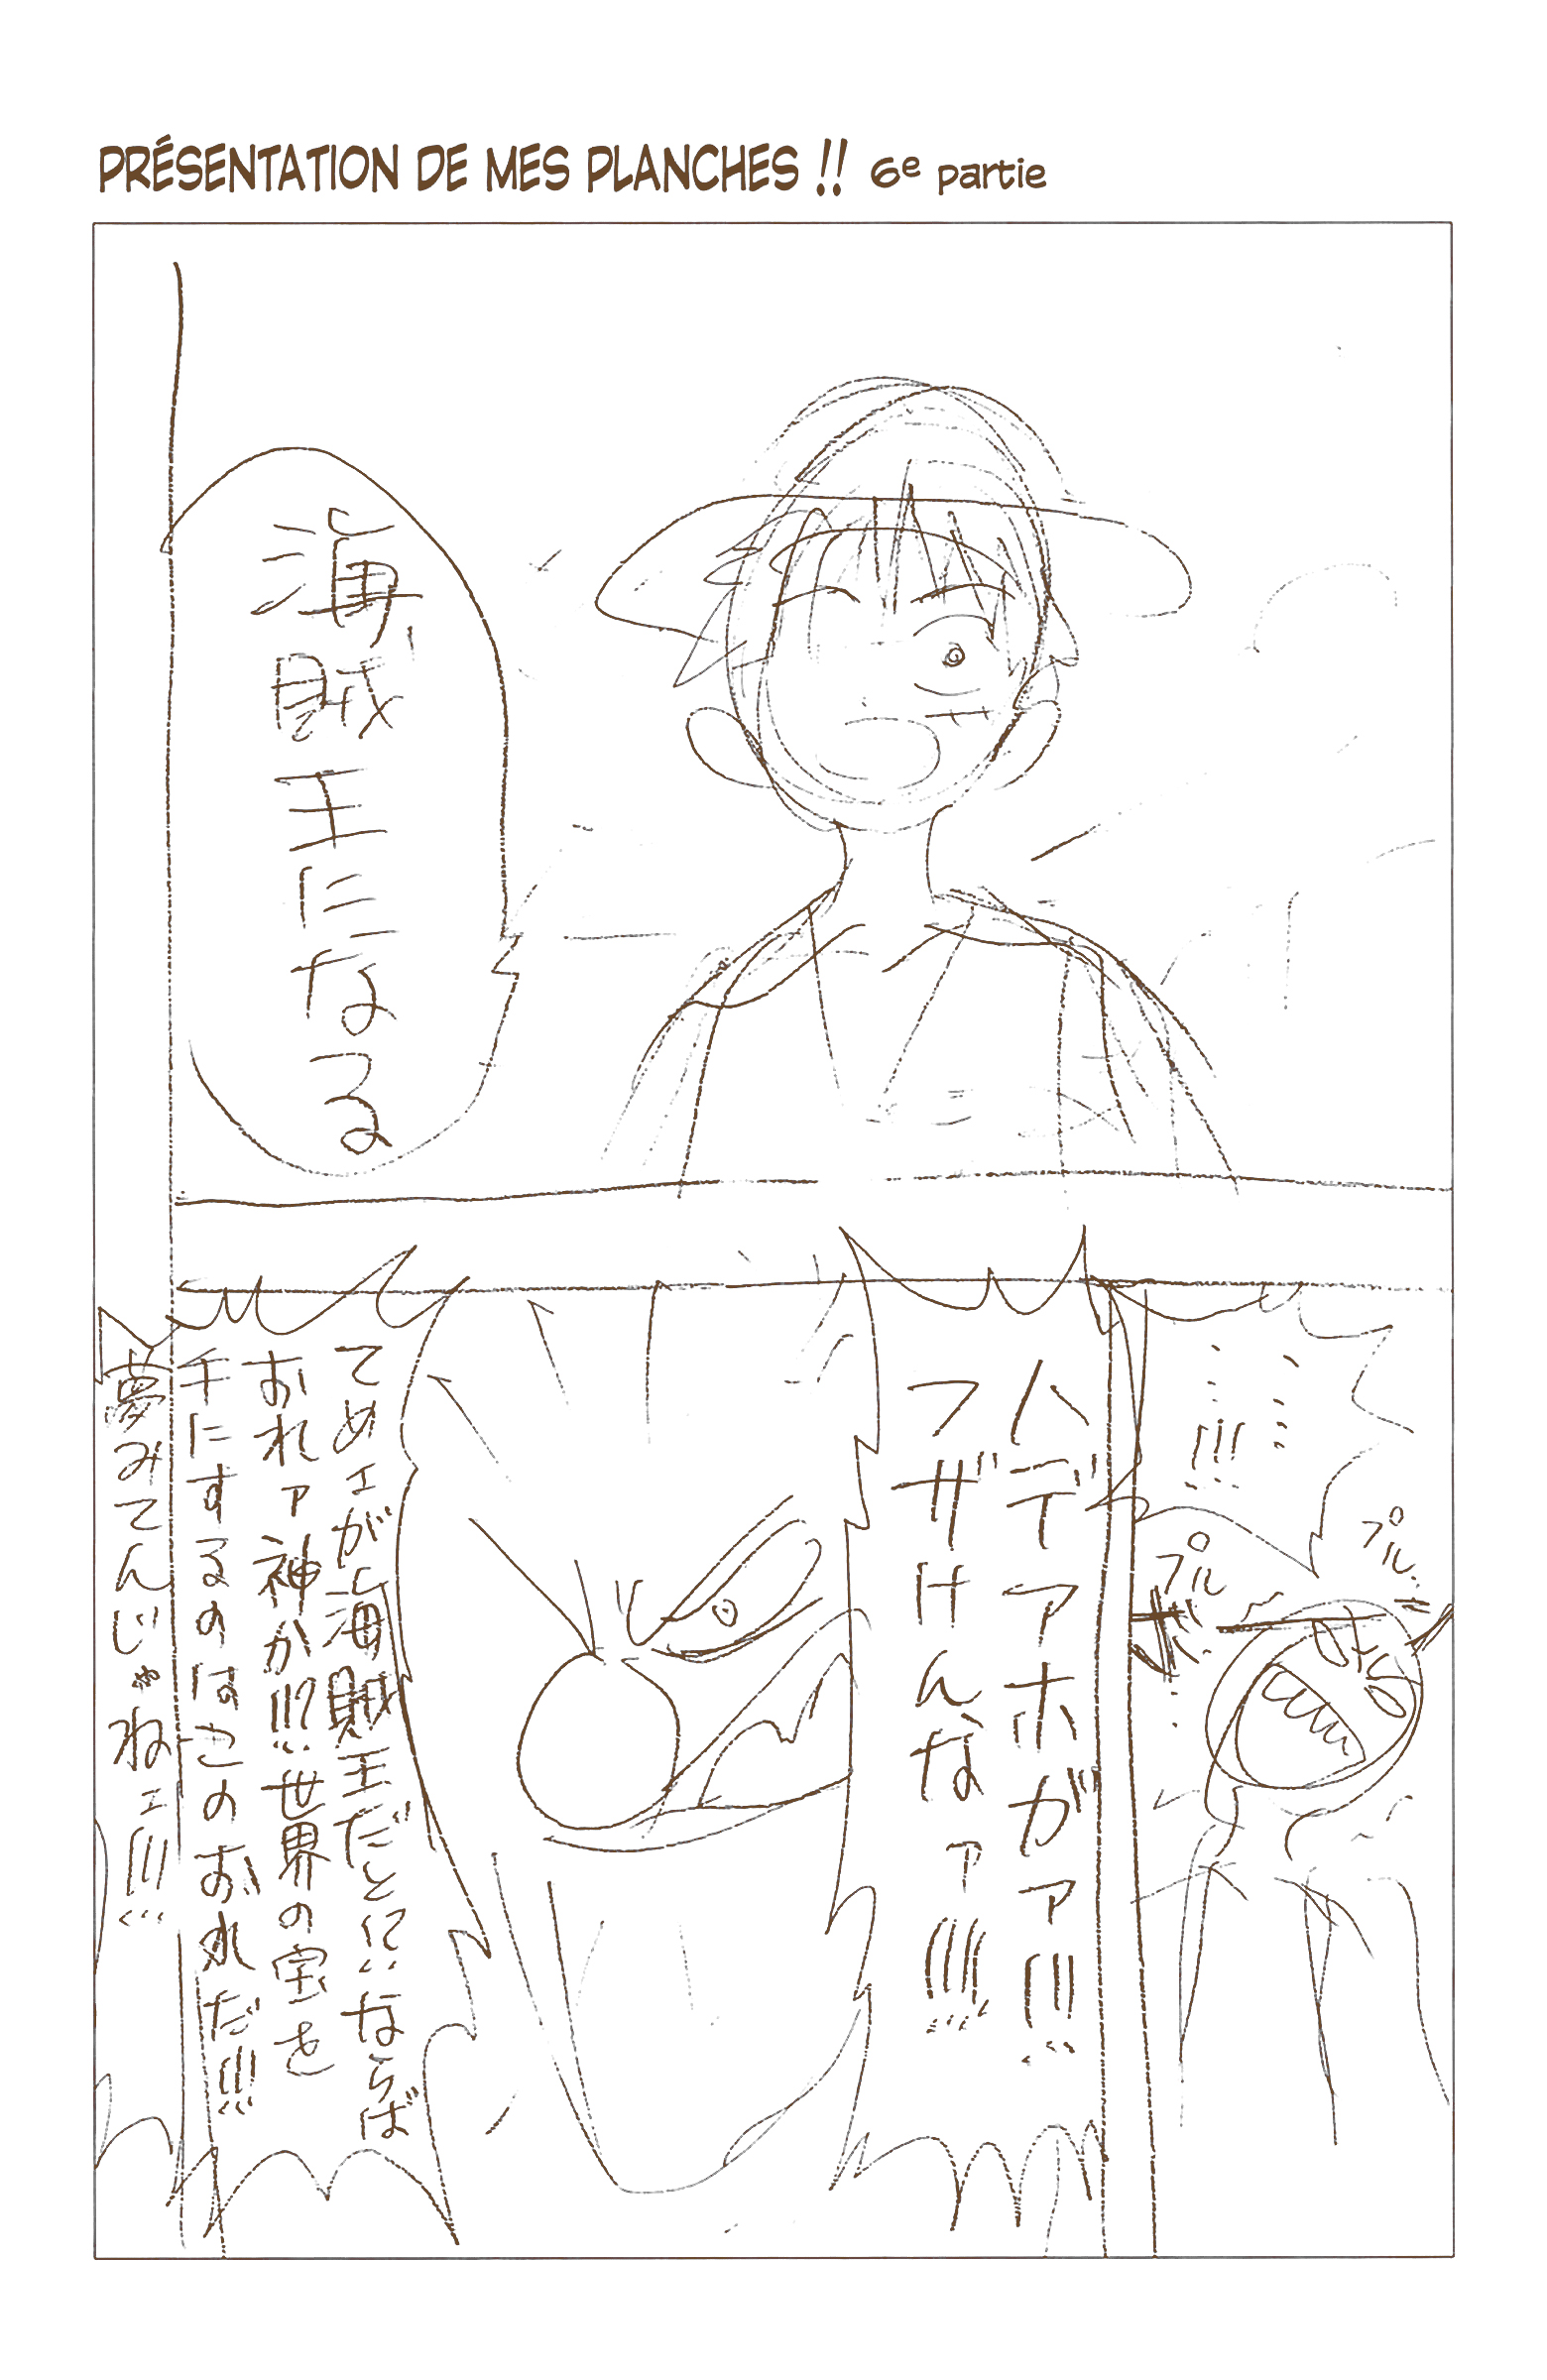 PRÉSENTATION DE MES PLANCHES !! 6e partie
海賊王になる
……!!!
プル
プル
ハデアホがァ!!!
フザけんなァ!!!!
てめェが海賊王だとぃならば
おれァ神か!!!?世界の宝を
手にするのはこのおれだ!!!
夢みてんじゃねェ!!!